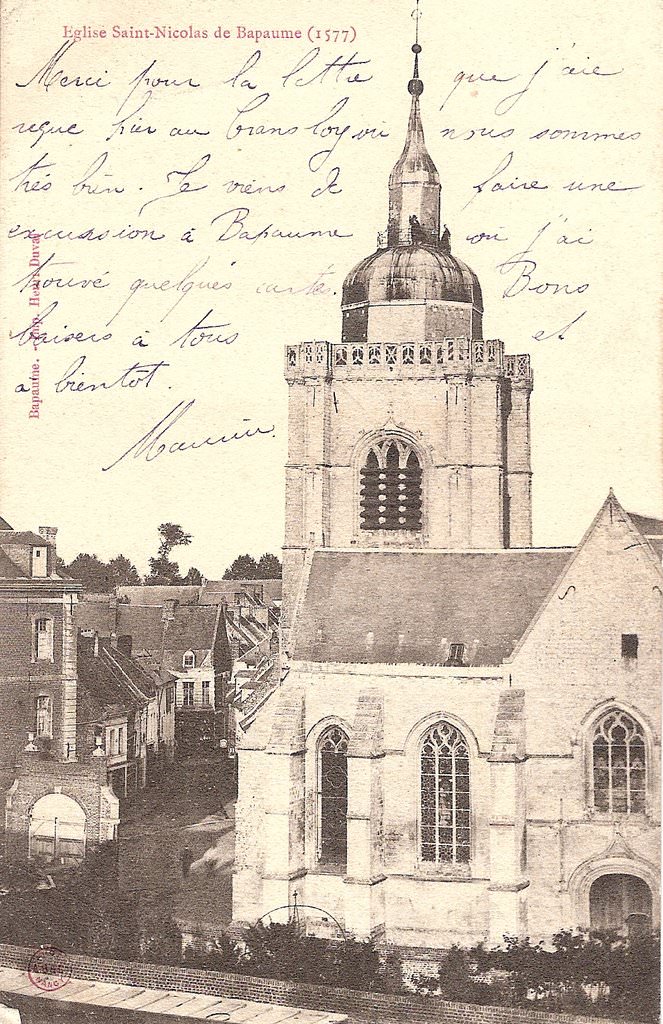 Eglise Saint-Nicolas de Bapaume (1577)
Merci pour la lettre que j'aie
reçue hier au Transloy ou nous sommes
très bien. Je viens de faire une
excursion à Bapaume ou j'ai
trouvé quelques carte. Bons
baisers à tous et
a bientôt.
Bapaume. - Imp. Henri Duval
NANCY